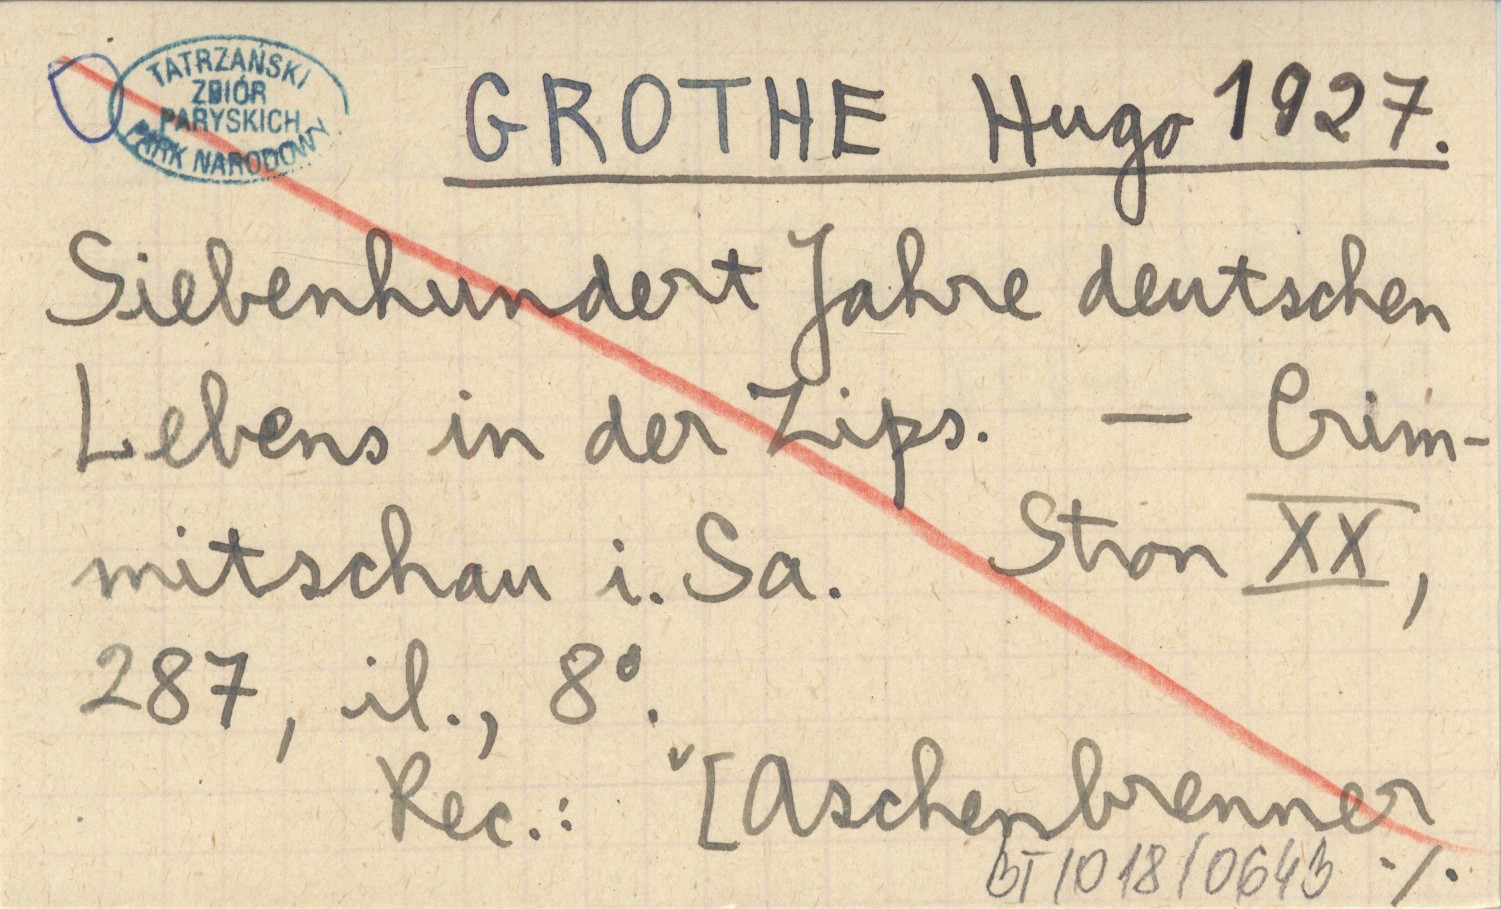 TATRZAŃSKI
ZBIÓR
PARYSKICH
PARK NARODOWY
GROTHE Hugo 1927.
Siebenhundert Jahre deutschen
Lebens in der Zips. — Crim-
mitschau i. Sa. Stron XX,
287, il., 8°.
Rec.: [Aschenbrenner
BT/018/0643 ./.